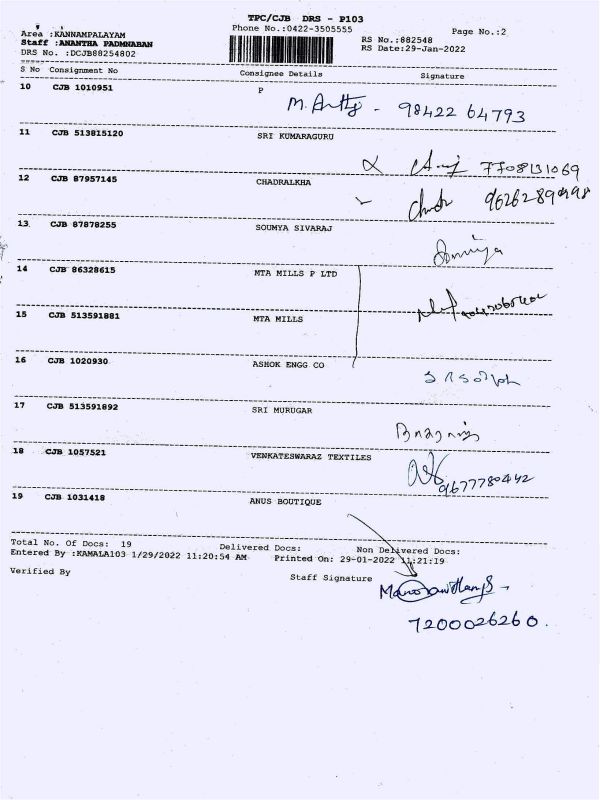 TPC/CJB DRS - P103
Area :KANNAMPALAYAM
Phone No.:0422-3505555
Page No.:2
Staff :ANANTHA PADMNABAN
RS No.:882548
DRS No. :DCJB88254802
RS Date:29-Jan-2022
S No Consignment No Consignee Details Signature
10 CJB 1010951 P
98422 64793
11 CJB 513815120 SRI KUMARAGURU
7708131069
12 CJB 87957145 CHADRALKHA
13 CJB 87878255 SOUMYA SIVARAJ
14 CJB 86328615 MTA MILLS P LTD
15 CJB 513591881 MTA MILLS
16 CJB 1020930 ASHOK ENGG CO
17 CJB 513591892 SRI MURUGAR
18 CJB 1057521 VENKATESWARAZ TEXTILES
9677780442
19 CJB 1031418 ANUS BOUTIQUE
Total No. Of Docs: 19 Delivered Docs: Non Delivered Docs:
Entered By :KAMALA103 1/29/2022 11:20:54 AM Printed On: 29-01-2022 11:21:19
Verified By Staff Signature
7200026260.